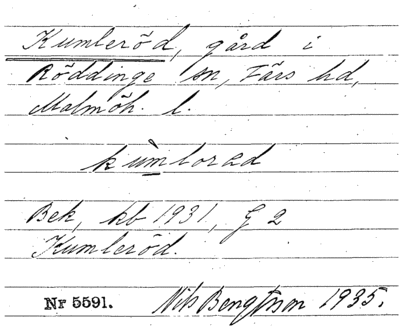 Kumleröd, gård i
Röddinge sn, Färs hd,
Malmöh. l.
kùmlorəd
Bek, kb 1931, G 2
Kumleröd.
Nr 5591. Nils Bengtsson 1935.